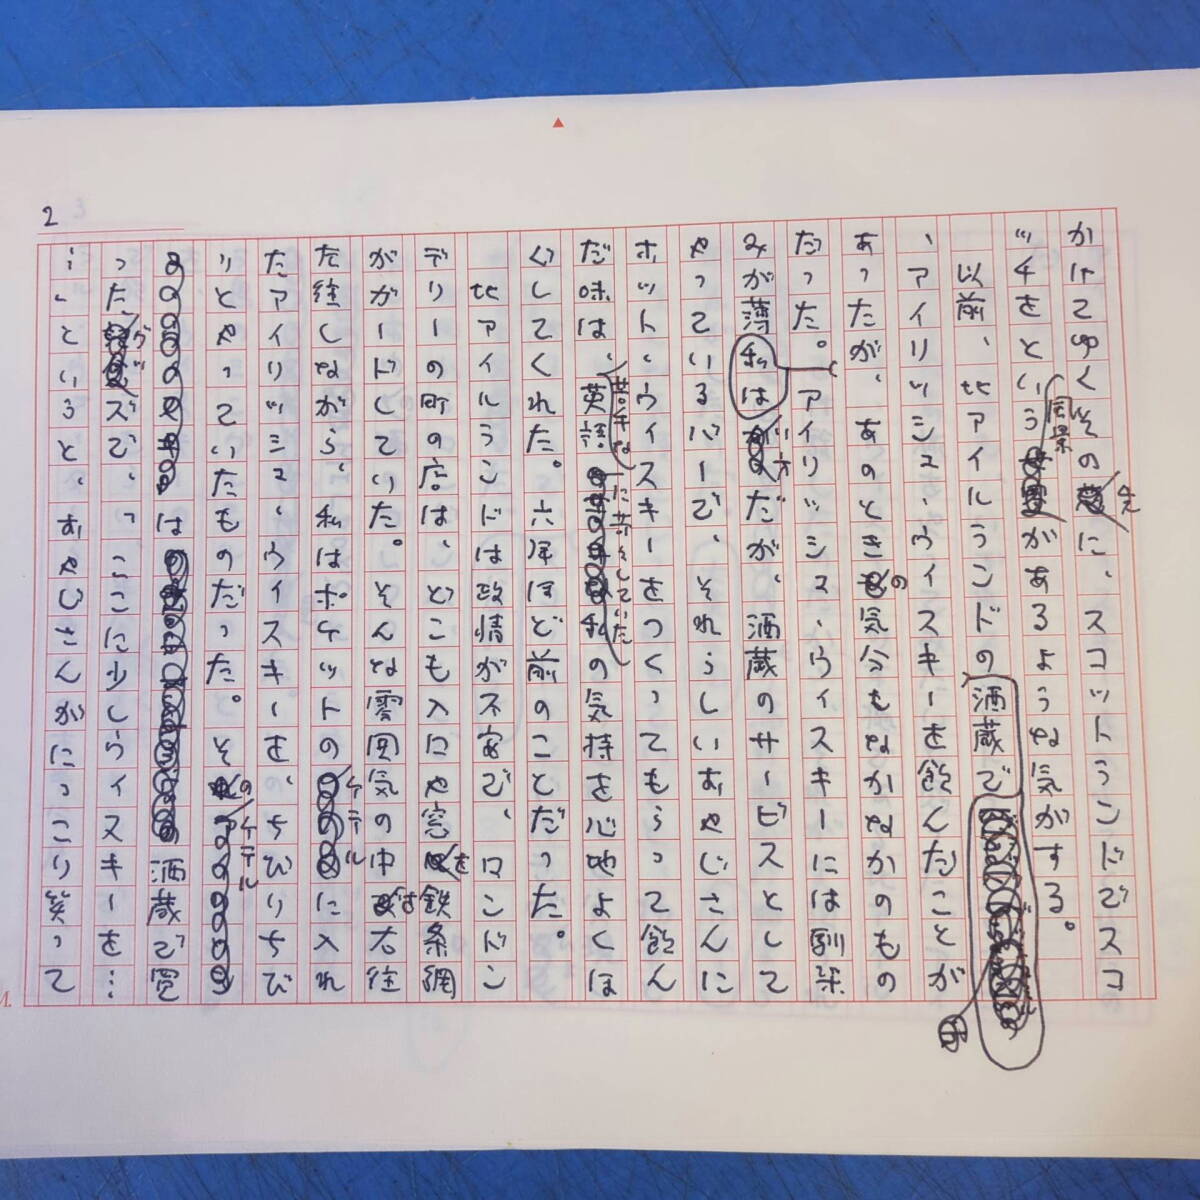 2
かけてゆくその先に、スコットランドでスコ
ッチをという風景があるような気がする。
以前、北アイルランドの酒蔵で
、アイリッシュウイスキーを飲んだことが
あったが、あのときの気分もなかなかのもの
だった。アイリッシュ、ウィスキーには馴染
みが薄私はい方だが、酒蔵のサービスとして
やっているバーで、それらしいおやじさんに
ホット、ウイスキーをつくってもらって飲ん
だ味は、苦手な英語に苦労していた私の気持を心地よくほ
ぐしてくれた。六年ほど前のことだった。
北アイルランドは政情が不安で、ロンドン
デリーの町の店は、どこも入口や窓を鉄条網
がガードしていた。そんな雰囲気の中では右往
左往しながら、私はポケットのケテルに入れ
たアイリッシュ、ウイスキーを、ちびりちび
りとやっていたものだった。そのケテル
は酒蔵で買
ったグッズで、っここに少しウィスキーを…
…、というと、おやじさんがにっこり笑って